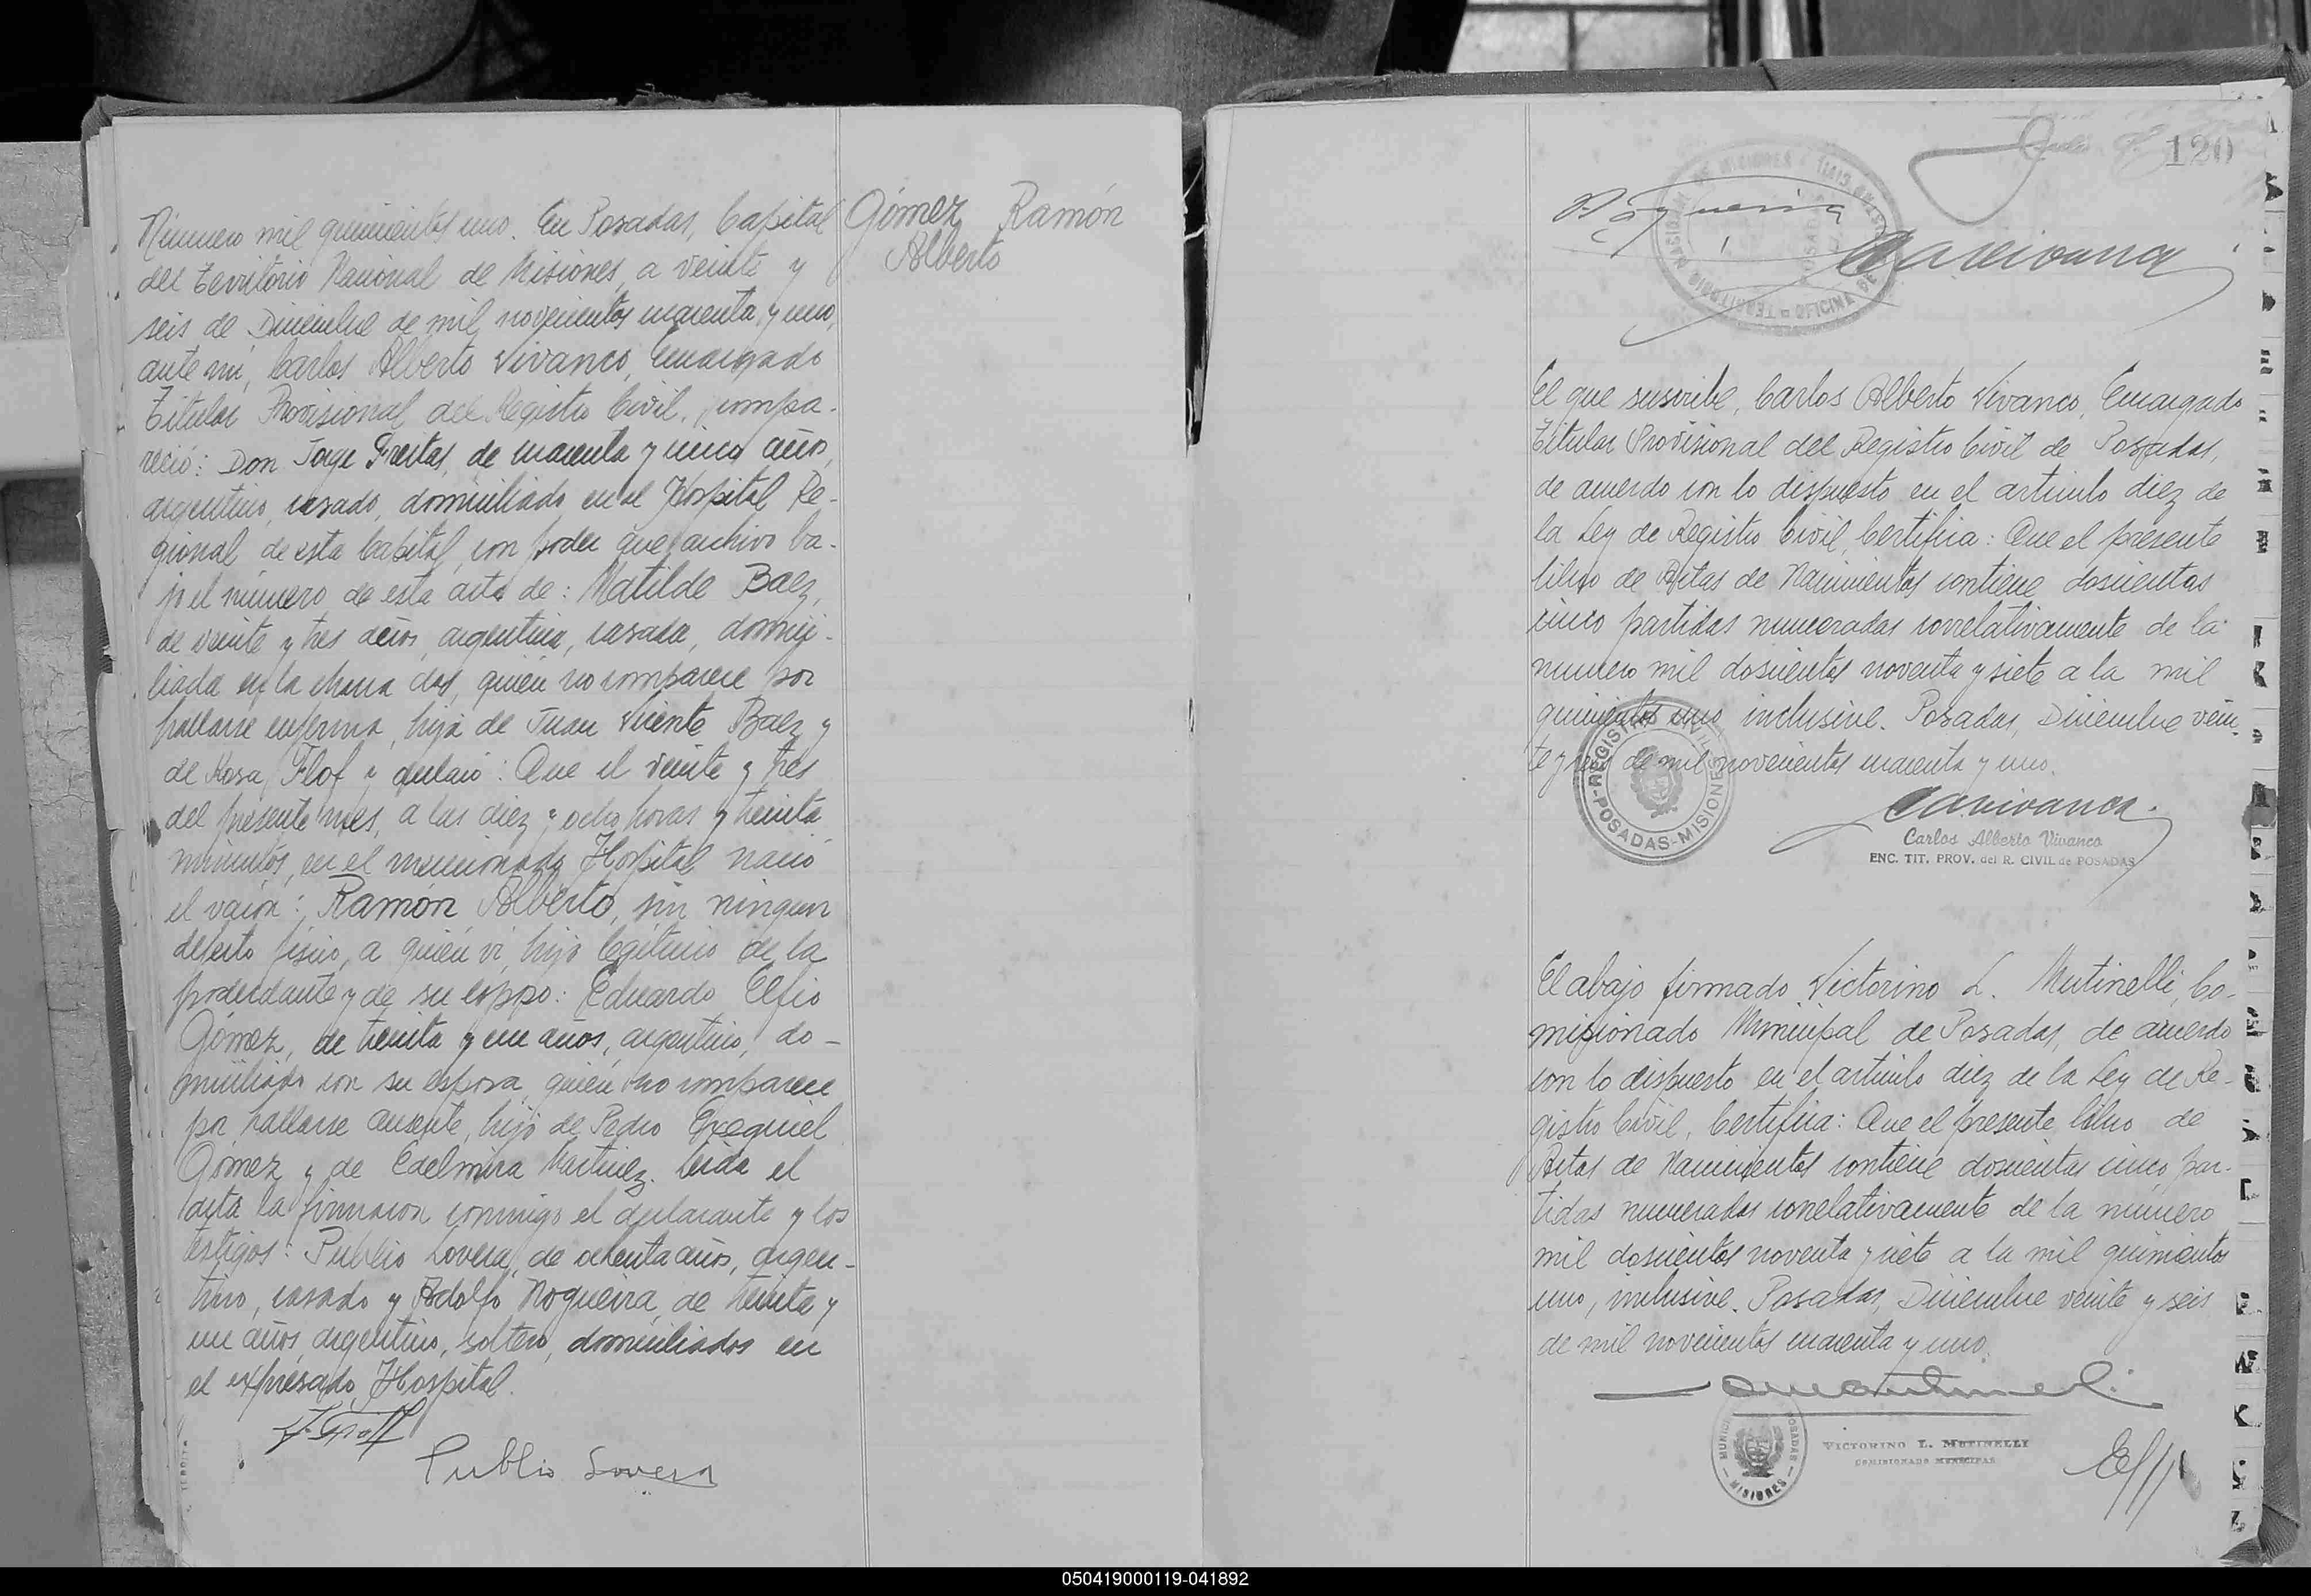 Número mil quinientos uno. En Posadas, Capital
del Territorio Nacional de Misiones, a veinte y
seis de Diciembre de mil novecientos cuarenta y uno,
ante mí, Carlos Alberto Vivanco, Encargado
Titular Provisional del Registro Civil, compa-
reció: Don Jorge Freitas, de cuarenta y cinco años,
argentino, casado, domiciliado en el Hospital Re-
gional de esta Capital, con poder que archivo ba-
jo el número de esta acta de: Matilde Baez,
de veinte y tres años, argentina, casada, domici-
liada en la chacra dos, quién no comparece por
hallarse enferma, hija de Juan Vicente Baez y
de Rosa Flof y declaró: Que el veinte y tres
del presente mes, a las diez y ocho horas y treinta
minutos, en el mencionado Hospital nació
el varón: Ramón Alberto, sin ningun
defecto físico, a quién vi, hijo legítimo de la
poderdante y de su esposo: Eduardo Elfio
Gómez, de treinta y un años, argentino, do-
miciliado con su esposa, quién no comparece
por hallarse ausente, hijo de Pedro Exequiel
Gómez y de Edelmira Martinez. Leida el
acta la firmaron conmigo el declarante y los
testigos: Publio Lovera, de ochenta años, argen-
tino, casado y Adolfo Nogueira, de treinta y
un años, argentino, soltero, domiciliados en
el expresado Hospital.
Publio Lovera
Gómez Ramón
Alberto
120
A. Nogueira
CAVivanco
El que suscribe, Carlos Alberto Vivanco, Encargado
Titular Provisional del Registro Civil de Posadas,
de acuerdo con lo dispuesto en el artículo diez de
la Ley de Registro Civil, Certifica: Que el presente
libro de Actas de Nacimientos contiene doscientas
cinco partidas numeradas correlativamente de la
numero mil doscientos noventa y siete a la mil
quinientos uno inclusive. Posadas, Diciembre vein-
te y seis de mil novecientos cuarenta y uno.
REGISTRO CIVIL
POSADAS-MISIONES
CAVivanco.
Carlos Alberto Vivanco
ENC. TIT. PROV. del R. CIVIL de POSADAS
El abajo firmado Victorino L. Mutinelli, Co-
misionado Municipal de Posadas, de acuerdo
con lo dispuesto en el artículo diez de la Ley de Re-
gistro Civil, Certifica: Que el presente libro de
Actas de Nacimientos contiene doscientas cinco par-
tidas numeradas correlativamente de la número
mil doscientos noventa y siete a la mil quinientos
uno, inclusive. Posadas, Diciembre veinte y seis
de mil novecientos cuarenta y uno.
VICTORINO L. MUTINELLI
COMISIONADO MUNICIPAL
MISIONES
050419000119-041892